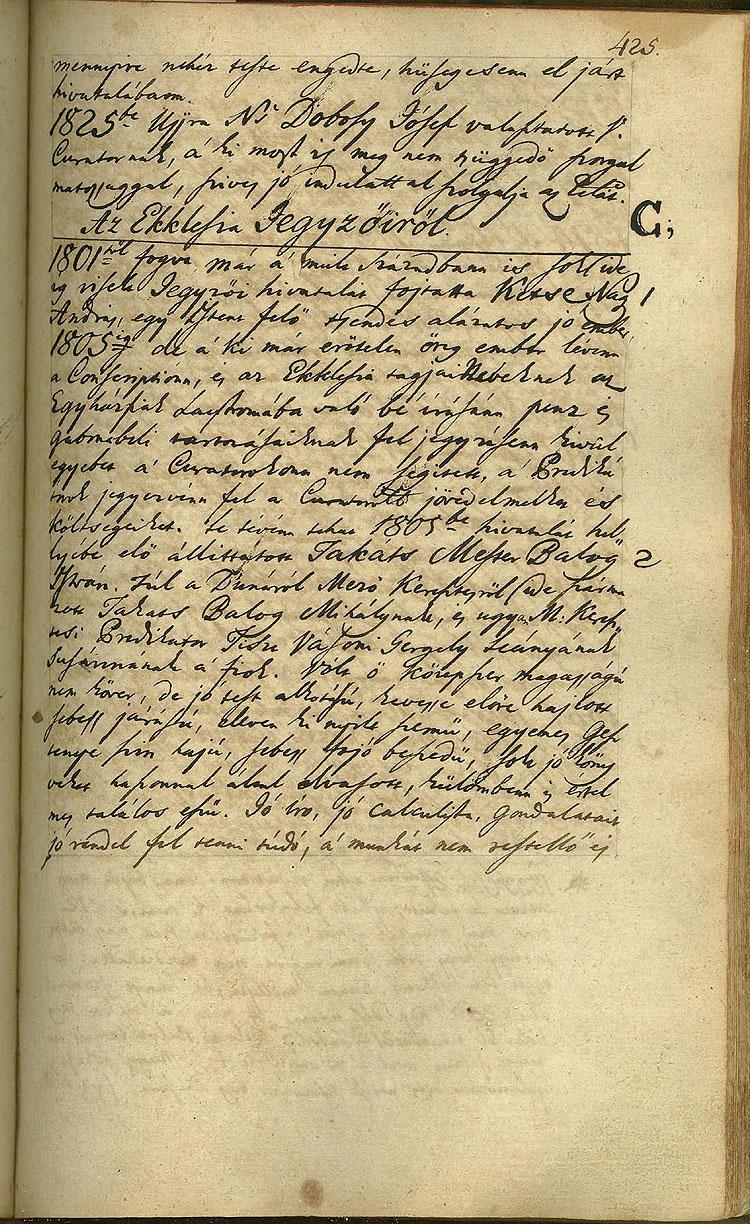 425.
mennyire nehéz teste engedte, hűségesenn el járt
hivatalábann.
1825be Ujjra Ns Dobosy Jósef valasztatott F.
Curatornak, á ki most is meg nem szüggedő szorgal
matossággal, szives jó indulattal szolgalja az Ekklát.
Az Ekklesia Jegyzőiről.
C;
1801től fogva már á mult Században is sok ide
ig viselt Jegyzői hivatalát fojtatta Ketse Nag 1
András, egy Istent félő tsendes alázatos jo ember,
1805ig de á ki már erőtelen öreg ember lévénn
a Conscriptionn, és az Ekklesia tagjai
Egyházfiak Lajstromába való bé irásánn penz és
gabonabéli tartozásaiknak fel jegyzésenn kivül
egyebet á Curatorokonn nem segitett, á Prediká
torok jegyezvénn fel a Curatori jövedelmeket és
költségeiket. Le tévénn tehát 1805be hivatalát hel
lyébe elő állittatott Takats Mester Balog 2
István. Túl a Dunáról Mező Keresztesről ide szárma
zott Takats Balog Mihálynak, és ugyan M: Keresz
tesi Predikátor Tisz: Vásoni Gergely leányának
Susánnának á fiok. Vólt ő középszer magasságú
nem kövér, de jó test alkotásu, kevesse előre hajlott
sebess járású, eleven ki nyilt szemű, egyenes Ges
tenye szin hajú, sebess szojó beszedű, sok jó köny
veket haszonnal által olvasott, külömbenn is értel
mes találos eszü. Jó iro, jó calculista, gondolatait
jó rendel fel tenni túdó, á munkát nem restellő és